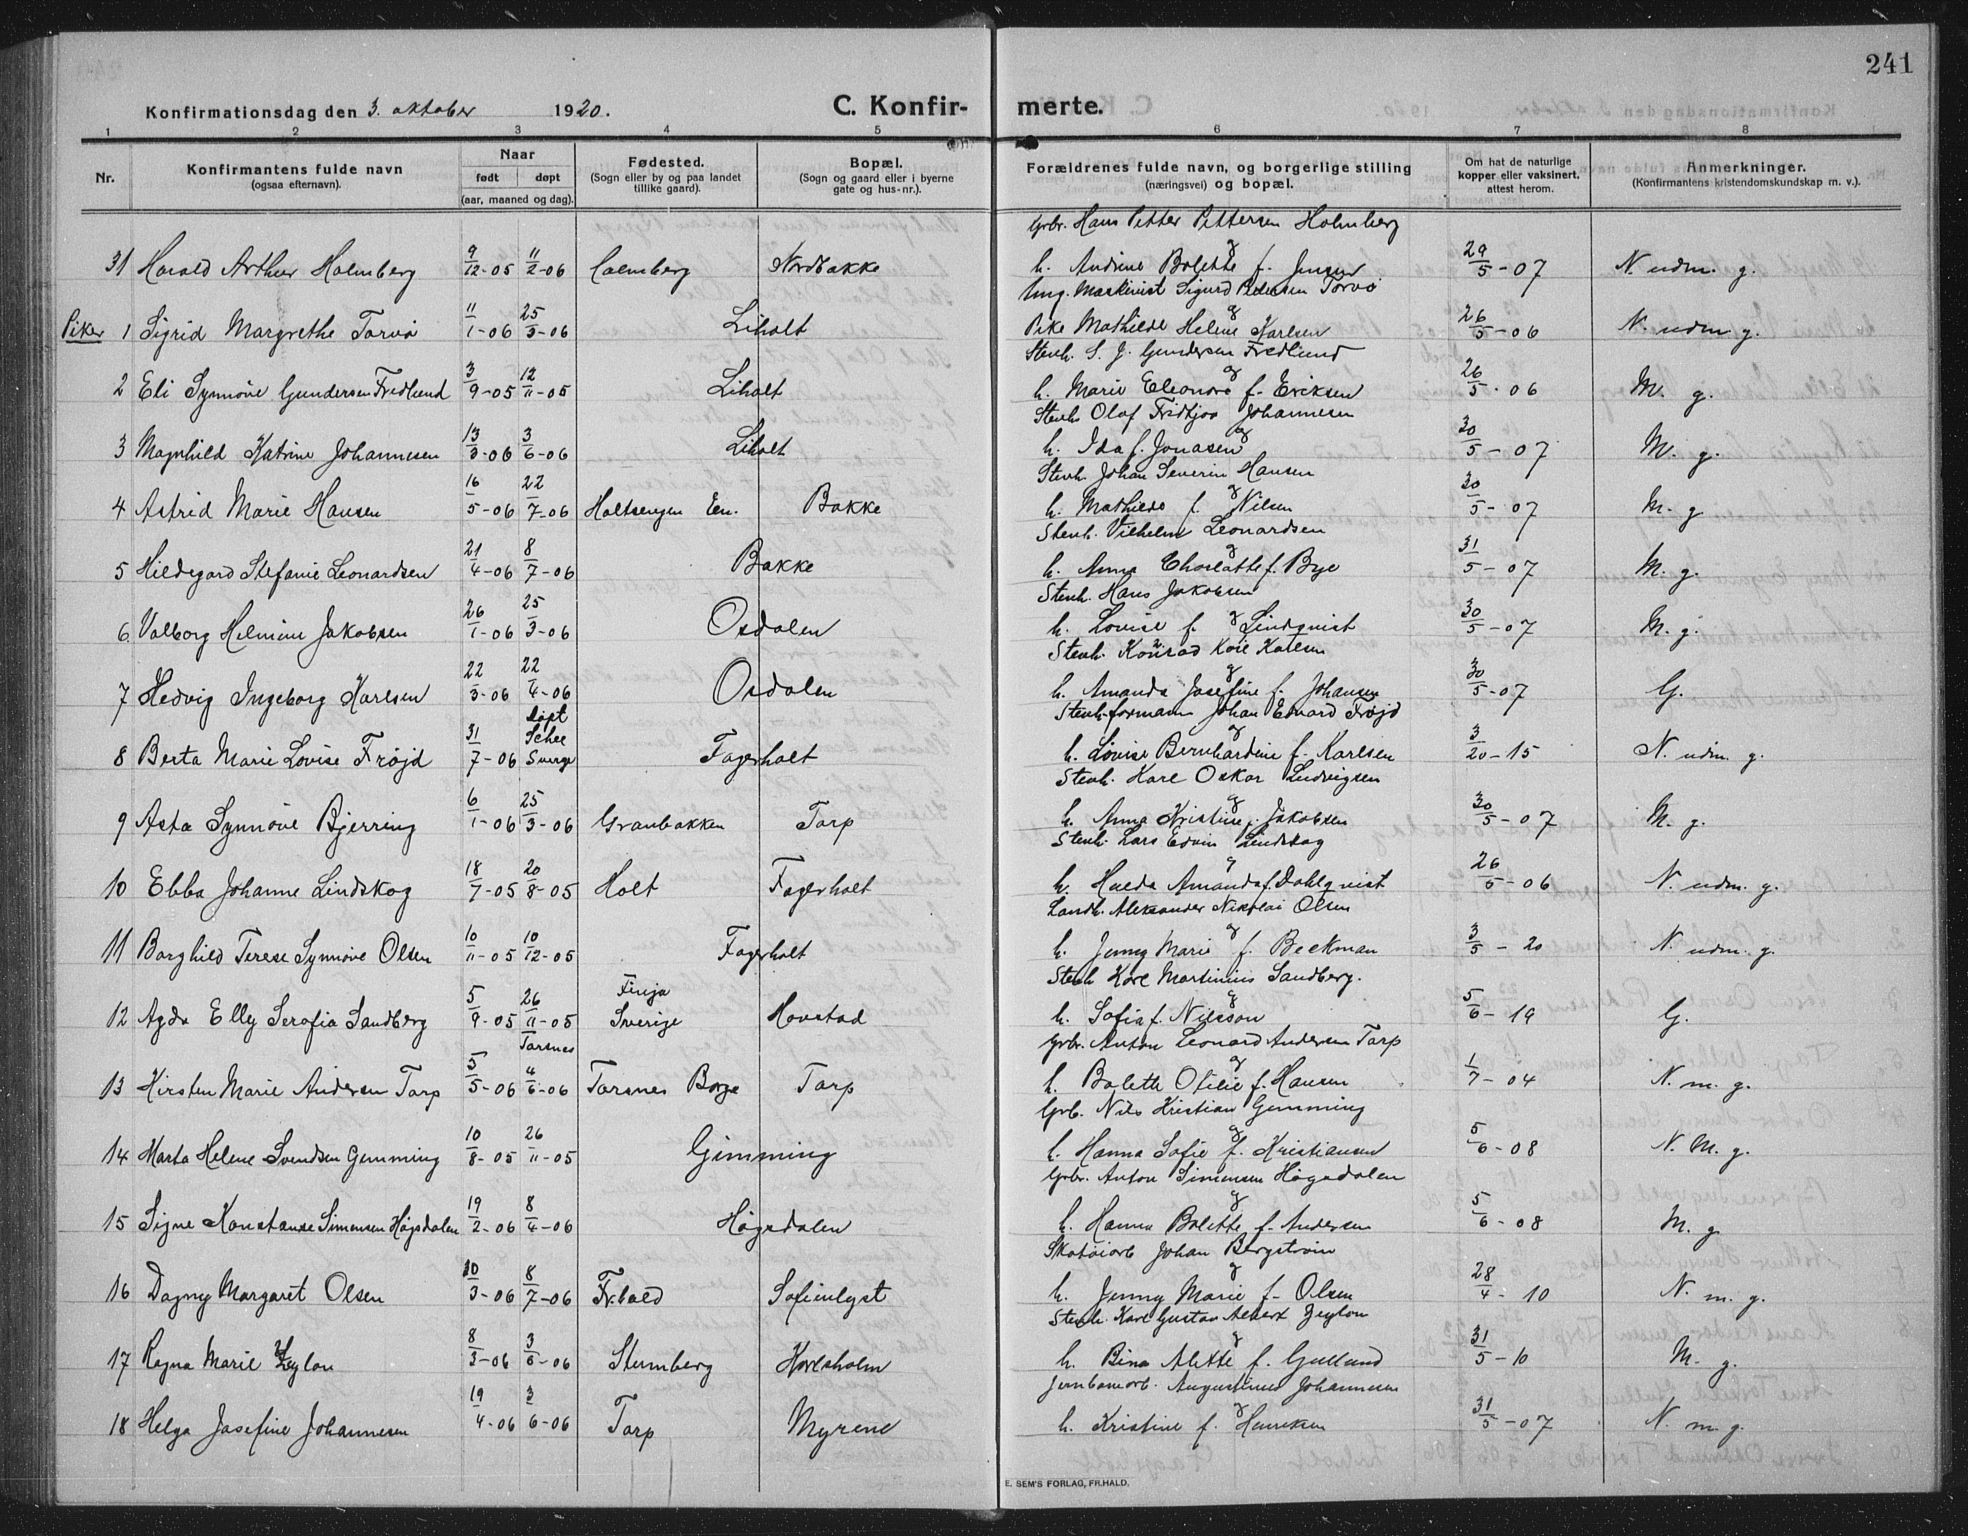 241
Konfirmationsdag den 3. oktober 1920.
C. Konfir- merte.
1 2 3 4 5 6 7 8
Nr.
Konfirmantens fulde navn
(ogsaa efternavn).
Naar
født døpt
(aar, maaned og dag).
Fødested.
(Sogn eller by og paa landet
tillike gaard).
Bopæl.
(Sogn og gaard eller i byerne
gate og hus-nr.).
Forældrenes fulde navn, og borgerlige stilling
(næringsvei) og bopæl.
Om hat de naturlige
kopper eller vaksinert,
attest herom.
Anmerkninger.
(Konfirmantens kristendomskundskap m. v.).
Grbr. Hans Petter Pettersen Holmberg
31 Harald Arthur Holmberg 9/12-05 11/2-06 Holmberg Nordbakke h. Andrine Bolette f. Jensen 29/5-07 N. udm. g.
Ung. Maskinist Sigurd Pedersen Torvø
Piker 1 Sigrid Margrethe Torvø 11/1-06 25/3-06 Liholt Pike Mathilde Helene Karlsen 26/5-06 N. udm g.
Stenh. S. J. Gundersen Fredlund
2 Eli Synnøve Gundersen Fredlund 3/9-05 12/11-05 Liholt h. Marie Eleonore f. Eriksen 26/5-06 M. g.
Stenh. Olaf Fridtjov Johannesen
3 Magnhild Katrine Johannesen 13/3-06 3/6-06 Liholt h. Ida f. Jonasen 30/5-07 M. g.
Stenh. Johan Severin Hansen
4 Astrid Marie Hansen 16/5-06 22/7-06 Holtsengen En. Bakke h. Mathilde f. Nilsen 30/5-07 M. g
Stenh. Vilhelm Leonardsen
5 Hildegard Stefanie Leonardsen 21/4-06 8/7-06 Bakke h. Anna Charlotte f. Bye 31/5-07 M. g.
Stenh. Hans Jakobsen
6. Valborg Helmine Jakobsen 26/1-06 25/3-06 Osdalen h. Lovise f. Lindqvist 30/5-07 M. g.
Stenh. Konrad Karl Karlsen
7 Hedvig Ingeborg Karlsen 22/3-06 22/4-06 Osdalen h. Amanda Josefine f. Johansen 30/5-07 G.
døpt Stenh.formann Johan Edvard Frøjd
8 Berta Marie Lovise Frøjd 31/7-06 Schee Sverge Fagerholt h. Lovise Bernhardine f. Karlsen 3/20-15 N. udm. g.
Stenh. Karl Oskar Ludvigsen
9 Asta Synnøve Bjerring 6/1-06 25/3-06 Granbakken Torp h. Anna Kristine f. Jakobsen 30/5-07 M. g.
Stenh. Lars Edvin Lindskog
10 Ebba Johanne Lindskog 18/7-05 20/8-05 Holt Fagerholt h. Hulda Amanda f. Dahlqvist 26/5-06 N. udm. g.
Landh. Aleksander Nikolai Olsen
11 Borghild Terese Synnøve Olsen 10/11-05 10/12-05 Fagerholt h. Jenny Marie f. Beckman 3/5-20 N. udm. g.
Stenh Karl Martinius Sandberg.
12 Agda Elly Serafia Sandberg 5/9-05 26/11-05 Sverige Hovstad h. Sofia f. Nilsson 5/6-19 G.
Torsnes Grbr. Anton Leonard Andersen Torp
13 Kirsten Marie Andersen Torp 5/5-06 4/6-06 Torsnes Borge Torp h. Bolette Otilie f. Hansen 1/7-04 N. m. g.
Grb. Nils Kristian Gimming
14 Marta Helene Svendsen Gimming 10/8-05 26/11-05 Gimming h. Hanna Sofie f. Kristiansen 5/6-08 N. M. g.
Grbr. Anton Simensen Høgsdalen
15 Signe Konstanse Simensen Høgsdalen 19/2-06 8/4-06 Høgsdalen h. Hanna Bolette f. Andersen 5/6-08 M. g.
Skotøiarb Johan Bergstrøm
16 Dagny Margaret Olsen 30/3-06 8/7-06 Fr.hald Sofienlyst h. Jenny Marie f. Olsen 28/4-10 N. m. g.
Stenh. Karl Gustav Albert Zeylon
17 Ragna Marie Zeylon 8/3-06 3/6-06 Stumberg Karlsholm h. Bina Alette f. Gullund 31/5-10 M. g.
Jernbanarb. Augustinus Johannesen
18 Helga Josefine Johannesen 19/4-06 3/6-06 Torp Myrene h. Kristine f. Henriksen 31/5-07 N. m. g.
E. SEM'S FORLAG, FR.HALD.